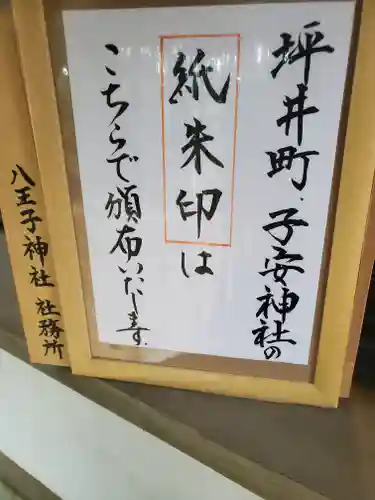 坪井町・子安神社の
紙朱印は
こちらで頒布いたします.
八王子神社 社務所